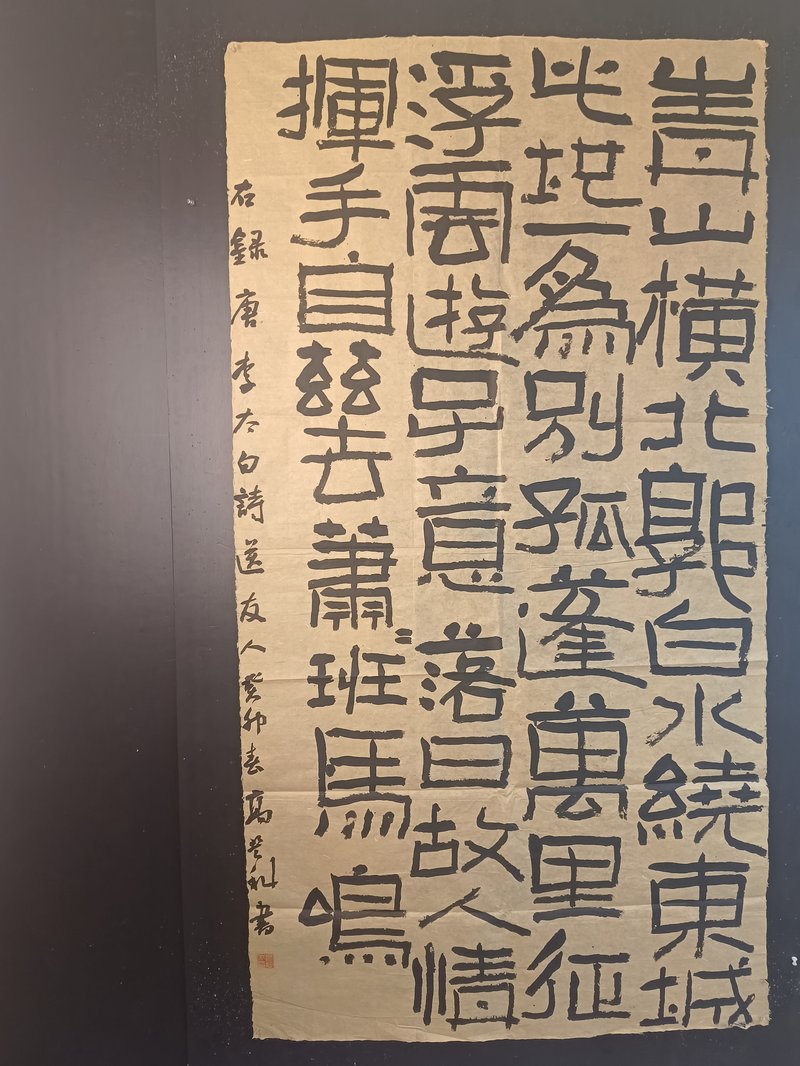 青山橫北郭白水繞東城
此地一為別孤蓬萬里征
浮雲遊子意落日故人情
揮手自兹去蕭〻班馬鳴
右錄唐李太白詩送友人癸卯春高登利書